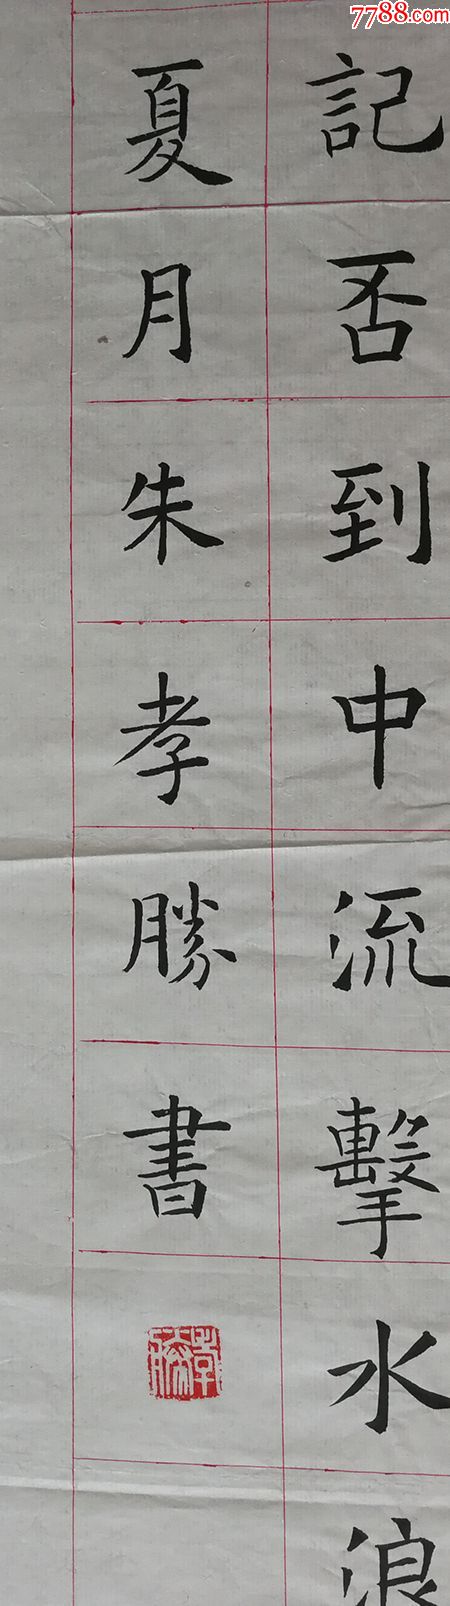 7788.com
記否到中流擊水浪
夏月朱孝勝書
孝勝